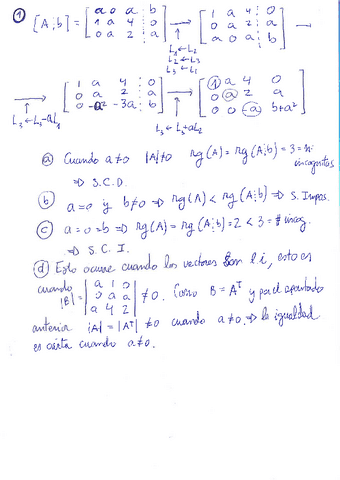 ① [A⋮b] = [ a 0 a ⋮ b ; 1 a 4 ⋮ 0 ; 0 a 2 ⋮ a ] → L₁←L₂ L₂←L₃ L₃←L₁ [ 1 a 4 ⋮ 0 ; 0 a 2 ⋮ a ; a 0 a ⋮ b ] →
→ L₃←L₃-aL₁ [ 1 a 4 ⋮ 0 ; 0 a 2 ⋮ a ; 0 -a² -3a ⋮ b ] → L₃←L₃+aL₂ [ 1 a 4 0 ; 0 a 2 a ; 0 0 -a b+a² ]
ⓐ Cuando a≠0 |A|≠0 rg(A) = rg(A⋮b) = 3 = nº incognitas
⇒ S.C.D.
ⓑ a=0 y b≠0 ⇒ rg(A) < rg(A⋮b) ⇒ S. Incomp.
ⓒ a=0=b ⇒ rg(A) = rg(A⋮b) = 2 < 3 = # incog.
⇒ S.C.I.
ⓓ Esto ocurre cuando los vectores son l i, esto es
cuando |B| = | a 1 0 ; 0 a a ; a 4 2 | ≠ 0. Como B = Aᵀ y por el apartado
anterior |A| = |Aᵀ| ≠ 0 cuando a≠0. ⇒ la igualdad
es cierta cuando a≠0.